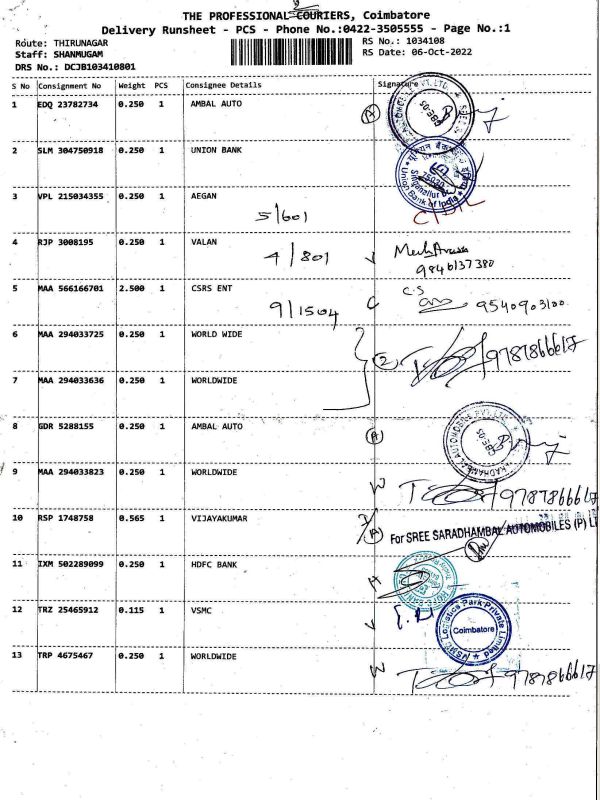 THE PROFESSIONAL COURIERS, Coimbatore
Delivery Runsheet - PCS - Phone No.:0422-3505555 - Page No.:1
Route: THIRUNAGAR
RS No.: 1034108
Staff: SHANMUGAM
RS Date: 06-Oct-2022
DRS No.: DCJB103410801
S No Consignment No Weight PCS Consignee Details Signature
1 EDQ 23782734 0.250 1 AMBAL AUTO A
CBE-05
2 SLM 304750918 0.250 1 UNION BANK
Singanallur
Union Bank of India
3 VPL 215034355 0.250 1 AEGAN
5/601
4 RJP 3008195 0.250 1 VALAN
4/801
9846137380
5 MAA 566166701 2.500 1 CSRS ENT C.S
9/1504 9540903100
6 MAA 294033725 0.250 1 WORLD WIDE
2 9787866617
7 MAA 294033636 0.250 1 WORLDWIDE
8 GDR 5288155 0.250 1 AMBAL AUTO A
CBE-05
9 MAA 294033823 0.250 1 WORLDWIDE
W 9787866617
10 RSP 1748758 0.565 1 VIJAYAKUMAR
A For SREE SARADHAMBAL AUTOMOBILES (P) L
11 IXM 502289099 0.250 1 HDFC BANK
12 TRZ 25465912 0.115 1 VSMC
Logistics Park Private Limited
Coimbatore
13 TRP 4675467 0.250 1 WORLDWIDE
W 9787866617